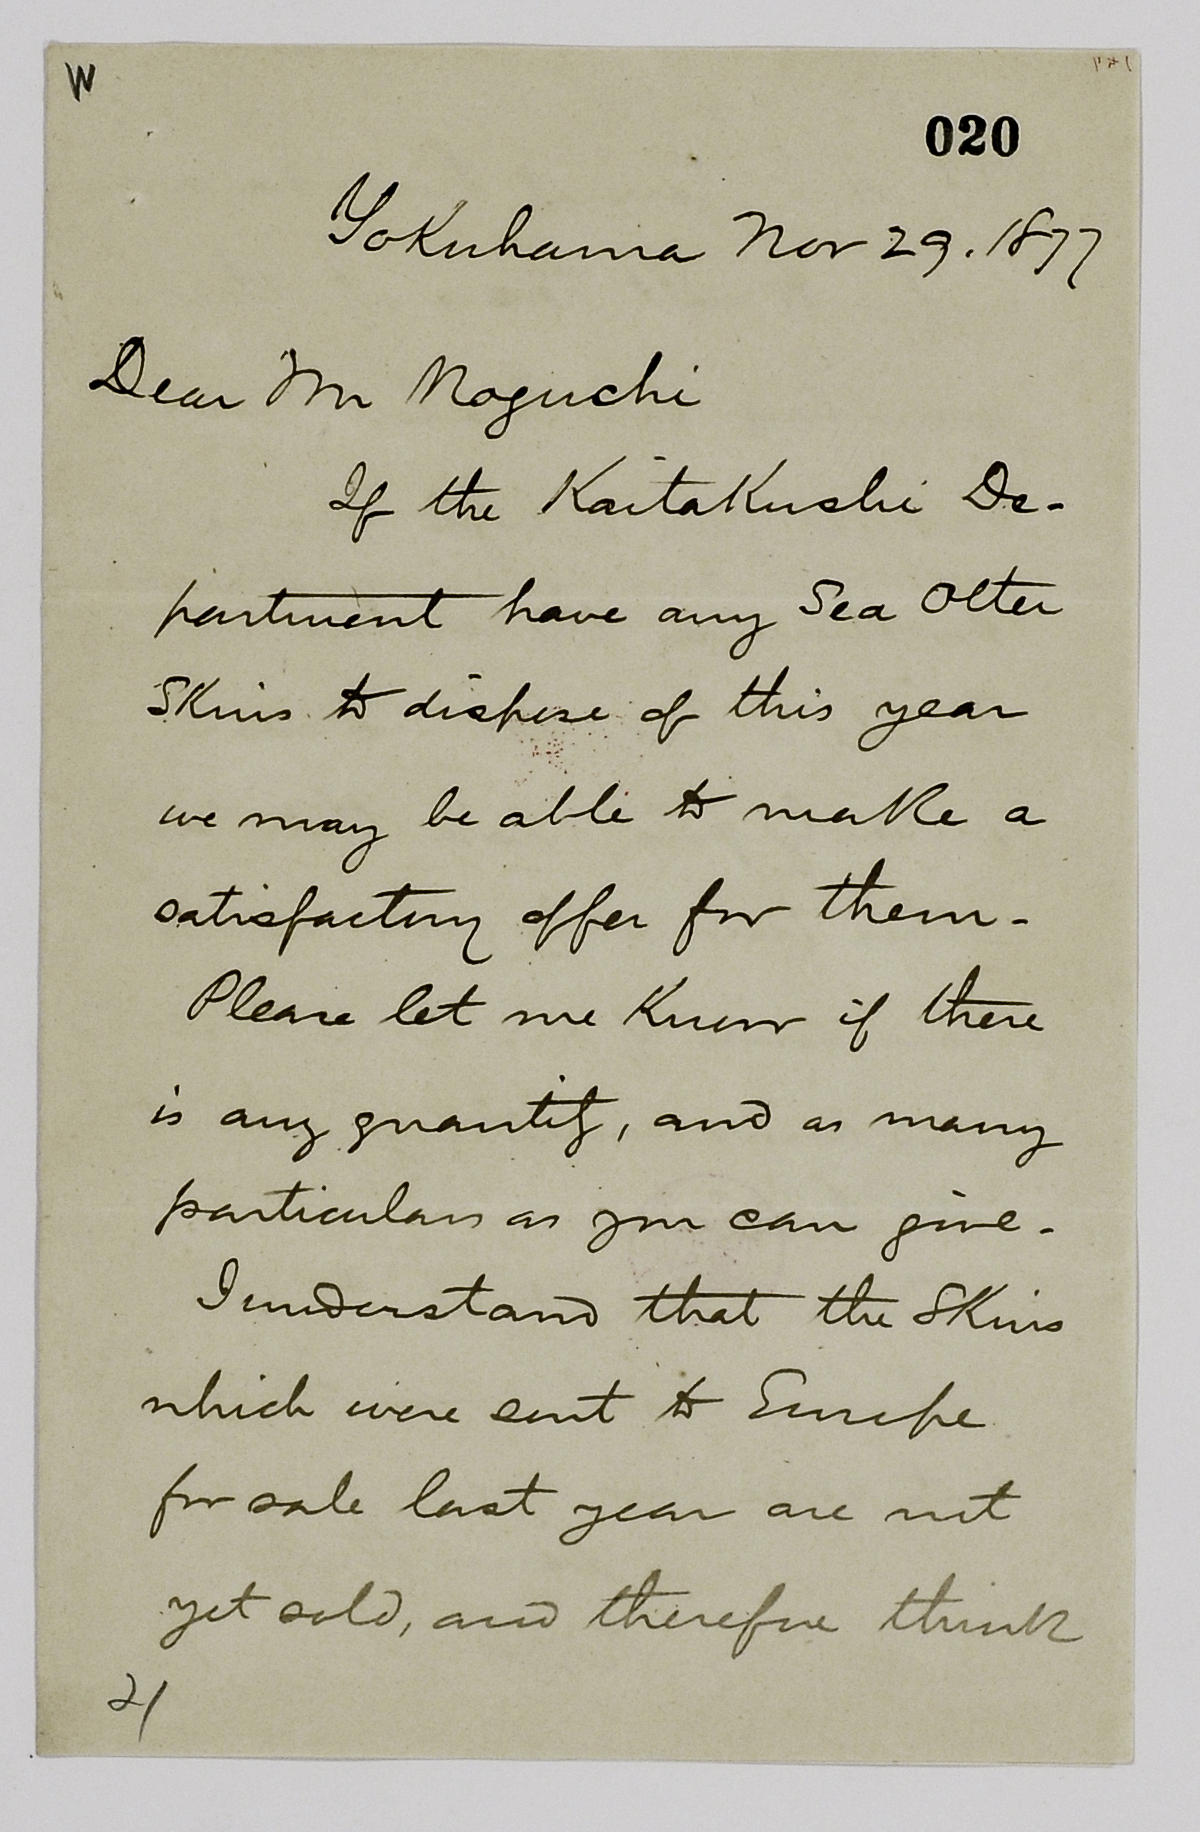 W
020
Yokuhama Nov 29. 1877
Dear Mr Noguchi
If the Kaitakushi De-
partment have any Sea Otter
Skins to dispose of this year
we may be able to make a
satisfactory offer for them -
Please let me Know if there
is any quantity, and as many
particulars as you can give -
I understand that the Skins
which were sent to Europe
for sale last year are not
yet sold, and therefore think
2/